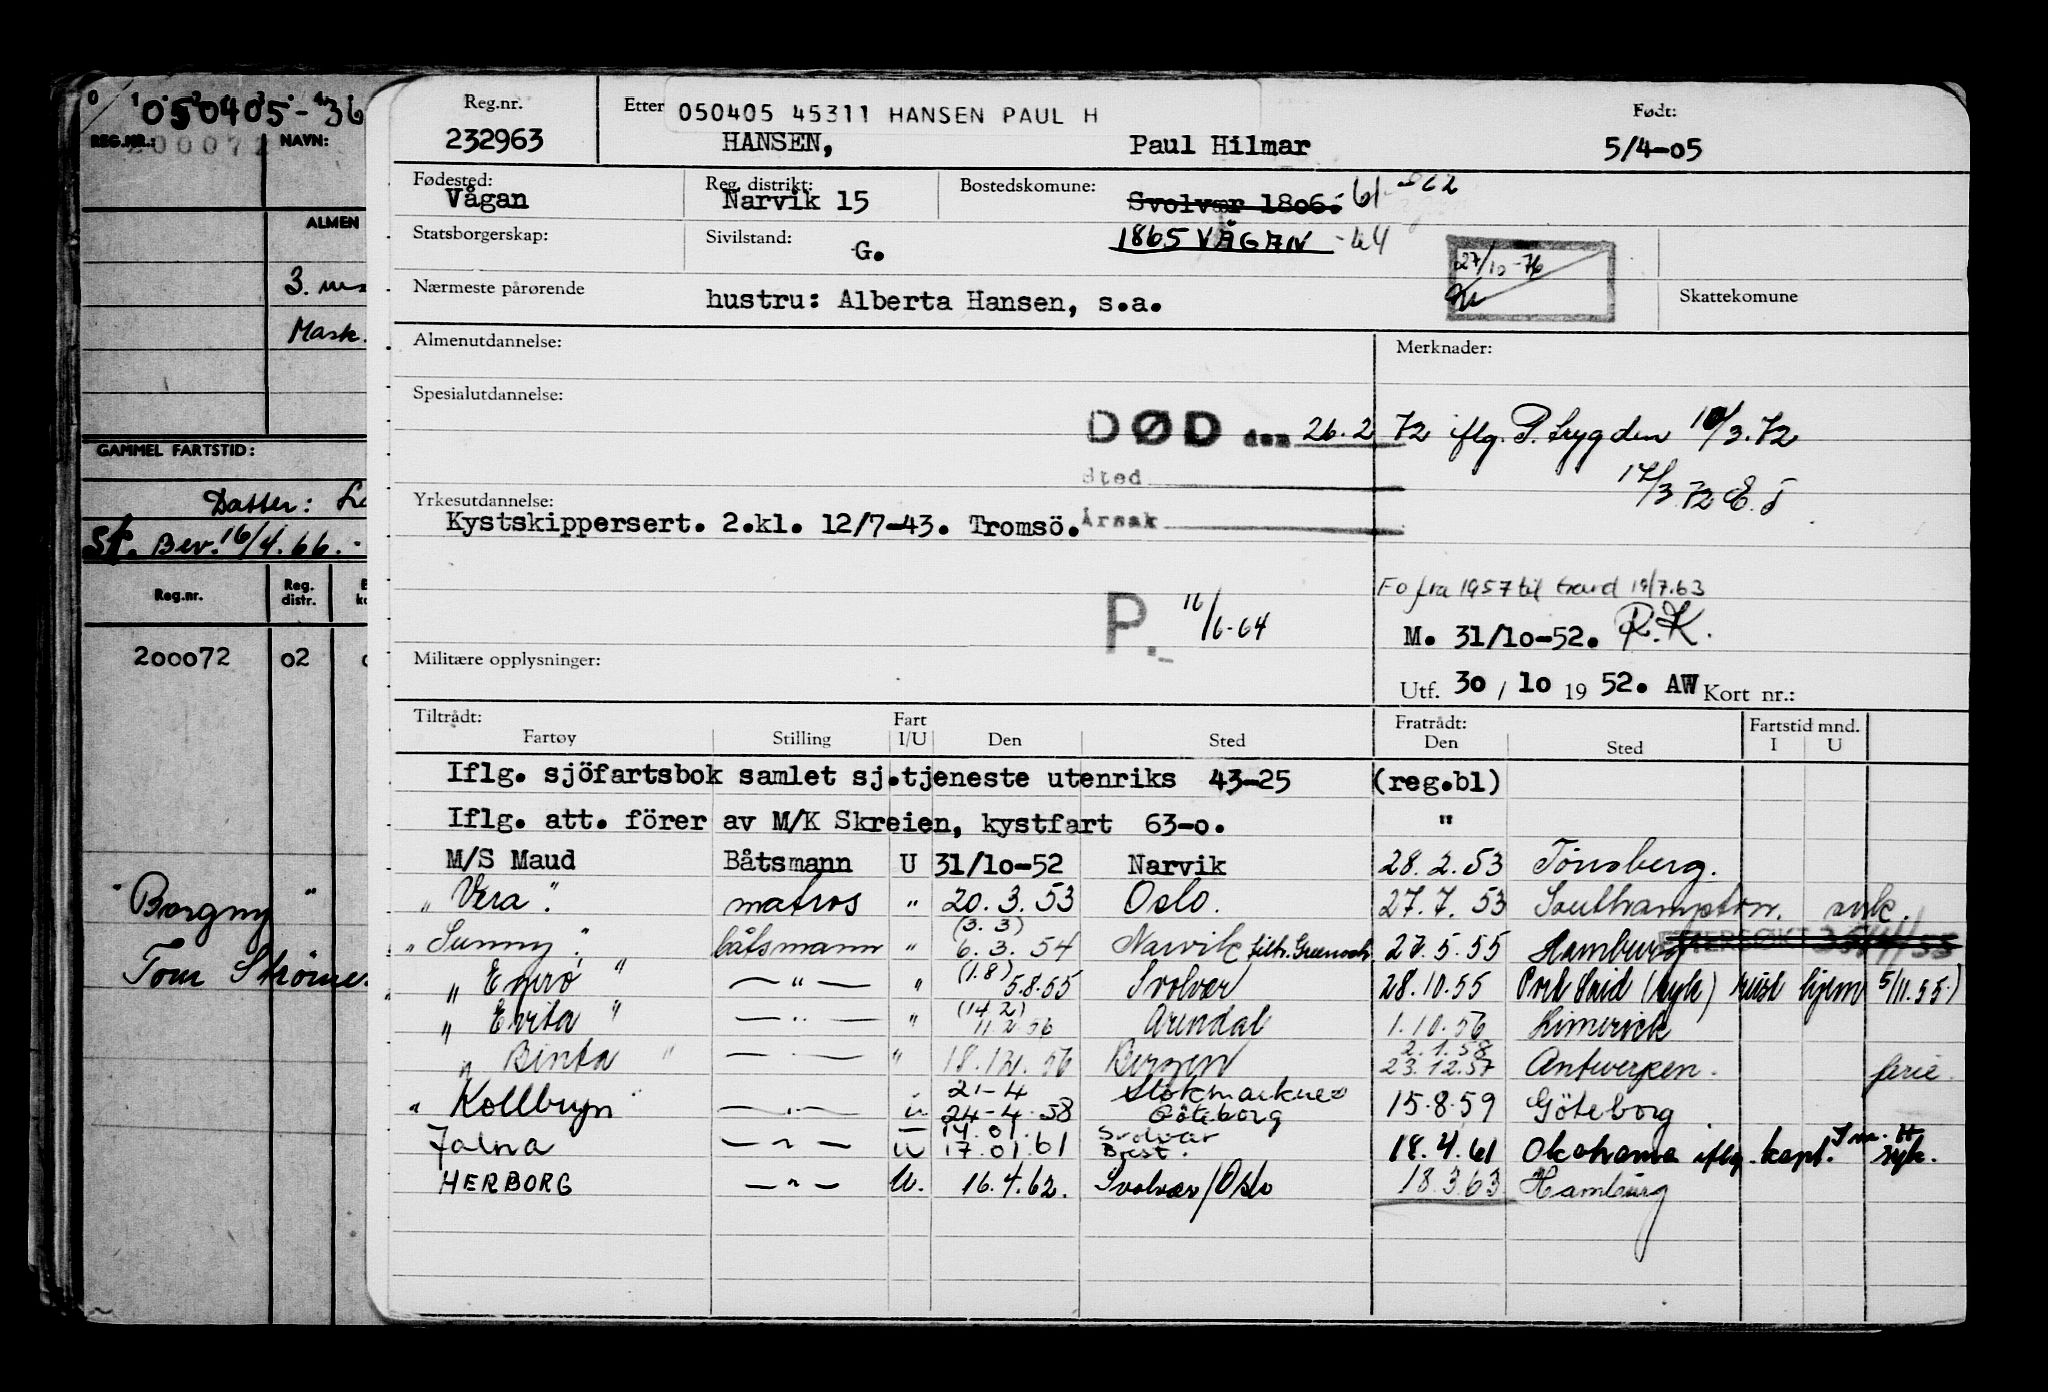 050405-36
REG.NR.: 200072 NAVN:
ALMEN
3. 
Mask.
GAMMEL FARTSTID:
Datter:
St. Bev. 16/4.66.-
Reg.nr. Reg. distr.
200072 02
" Borgny "
Tom Strømer
Reg.nr. Etter 050405 45311 HANSEN PAUL H Født:
232963 HANSEN, Paul Hilmar 5/4-05
Fødested: Reg. distrikt: Bostedskomune:
Vågan Narvik 15 Svolvær 1806. 61
Statsborgerskap: Sivilstand: G. 1865 VÅGAN -64
27/10-76
Nærmeste pårørende hustru: Alberta Hansen, s.a. Skattekomune
Almenutdannelse: Merknader:
Spesialutdannelse:
DØD den 26.2 72 iflg. P. trygden 10/3.72
Sted 17/3.72 E.J
Yrkesutdannelse:
Kystskippersert. 2.kl. 12/7-43. Tromsö. Årsak
Fo fra 1957 til 19/7.63
P. 16/6-64 M. 31/10-52. R.K.
Militære opplysninger:
Utf. 30 / 10 19 52. AW Kort nr.:
Tiltrådt: Fart Fratrådt: Fartstid mnd.
Fartøy Stilling I/U Den Sted Den Sted I U
Iflg. sjöfartsbok samlet sj.tjeneste utenriks 43-25 (reg.bl)
Iflg. att. förer av M/K Skreien, kystfart 63-0. "
M/S Maud Båtsmann U 31/10-52 Narvik 28.2.53 Tönsberg.
" Vera". matros " 20.3.53 Oslo. 27.7.53 Southampton. avk.
(3.3)
" Sunny". båtsmann " 6.3.54 Narvik tiltr. Greenock 27.5.55 Hamburg ETTERSØKT
" Enpro " — " — " (1.8) 5.8.55 Svolvær 28.10.55 Port Said (syk) reist hjem 5/11.55.)
(14.2)
" Evita " — " — " 11.2.56 Arendal 1.10.56 Limerick
" Binta " — " — " 18.12.56 Bergen 2.1.58 23.12.57 Antwerpen. ferie.
" Kollbryn " — " — U 21-4 24-4.58 Stokmarknes Göteborg 15.8.59 Göteborg
Jalna — " — U 14.01. 17.01.61 Svolvær Brest. 18.4.61 Okohama iflg. kapt. syk.
HERBORG — " — U. 16.4.62. Svolvær/Oslo 18.3.63 Hamburg